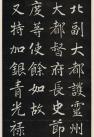 北副大都護靈州
大都督府長史節
度等使餘如故
又持加銀青光祿